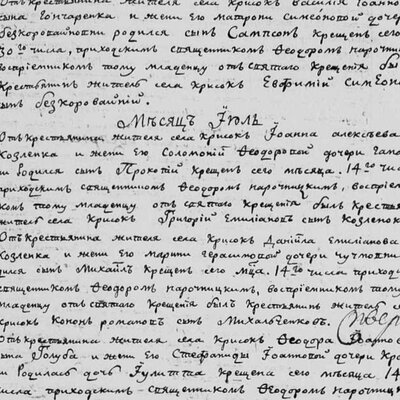 Отъ крестьянина жителя села Крисокъ Василія Іоанно
сына Гончаренка и жени его Матрони Симеоновой дочер
Безкоровайновни родился сынъ Сампсонъ крещенъ сего
30го числа, приходскимъ священникомъ Ѳеодоромъ Нарочниц
воспріемникомъ тому младенцу отъ святаго крещенія бы
крестьянинъ житель села Крисокъ Евфимій Симеоно
сынъ Безкоровайній.
Мѣсяцъ Іюль
Отъ крестьянина жителя села Крисокъ Іоанна Алексѣева
Козленка и жени его Соломоніи Ѳеодоровой дочери Гама
ни родился сынъ Прокопій крещенъ сего мѣсяца. 14го чис
приходскимъ священникомъ Ѳеодоромъ Нарочницкимъ, воспріем
комъ тому младенцу отъ святаго крещенія былъ крестьян
житель села Крисокъ Григорій Емиліановъ сынъ Козленок
Отъ крестьянина жителя села Крисокъ Даніила Емиліанова
Козленка и жени его Марини Герасимовой дочери
дился сынъ Михаилъ крещенъ сего мца. 14го числа приход
священникомъ Ѳеодоромъ Нарочницкимъ, воспріемникомъ тому
младенцу отъ святаго крещенія былъ крестьянинъ житель
Крисокъ Кононъ Романовъ сынъ Михальченковъ.
Отъ крестьянина жителя села Крисокъ Ѳеодора Іоаннов
сына Голуба и жени его Стефаниды Іоанновой дочери Кра
ни родилась дочь Іулитта крещена сего мѣсяца 14
числа приходскимъ священникомъ Ѳеодоромъ Нарочницк